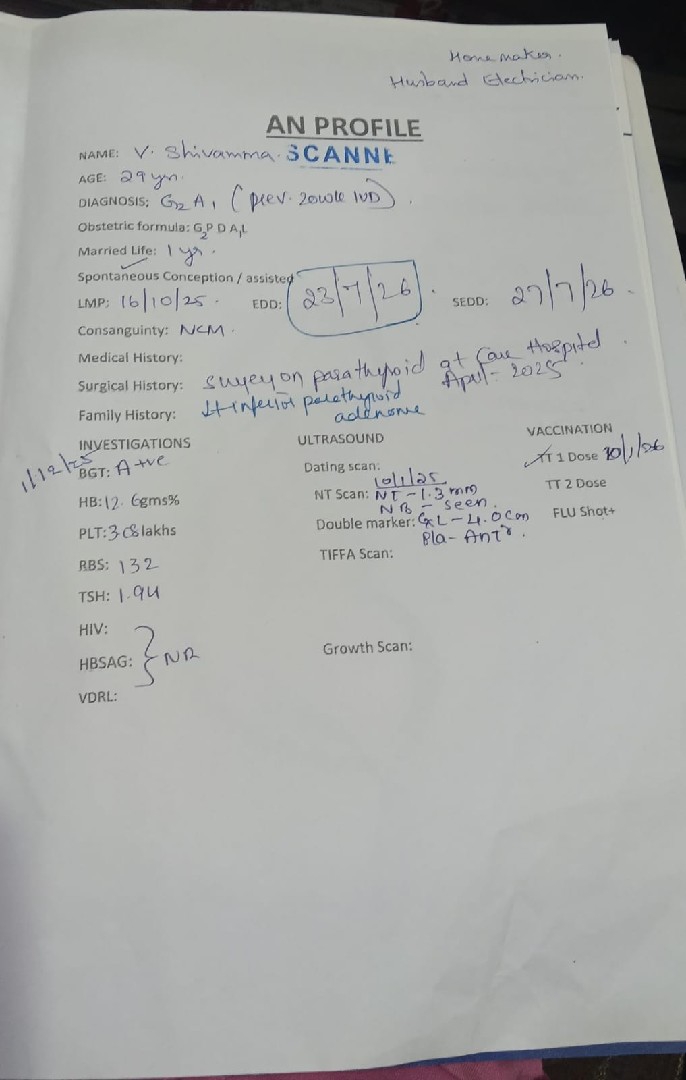 Home maker.
Husband Electrician.
AN PROFILE
NAME: V. Shivamma. SCANNE
AGE: 29 yrs.
DIAGNOSIS: G2 A1 (prev. 20wk IUD).
Obstetric formula: G2 P D A1 L
Married Life: 1 yr.
Spontaneous Conception / assisted
LMP: 16/10/25. EDD: 23/7/26. SEDD: 27/7/26.
Consanguinty: NCM.
Medical History:
Surgical History: surgery on parathyroid at Care Hospital.
April - 2025
Family History: Lt inferior parathyroid
adenoma
INVESTIGATIONS ULTRASOUND VACCINATION
1/12/25
BGT: A +ve Dating scan: TT 1 Dose 30/1/26
10/1/25
HB: 12.6gms% NT Scan: NT - 1.3 mm TT 2 Dose
NB - seen.
PLT: 3.08 lakhs Double marker: CxL - 4.0cm FLU Shot+
Pla- Antr.
RBS: 132 TIFFA Scan:
TSH: 1.94
HIV:
HBSAG: } NR Growth Scan:
VDRL: